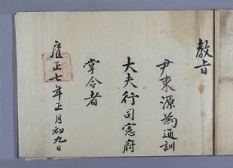 敎旨
尹東源爲通訓
大夫行司憲府
掌令者
雍正七年正月初九日